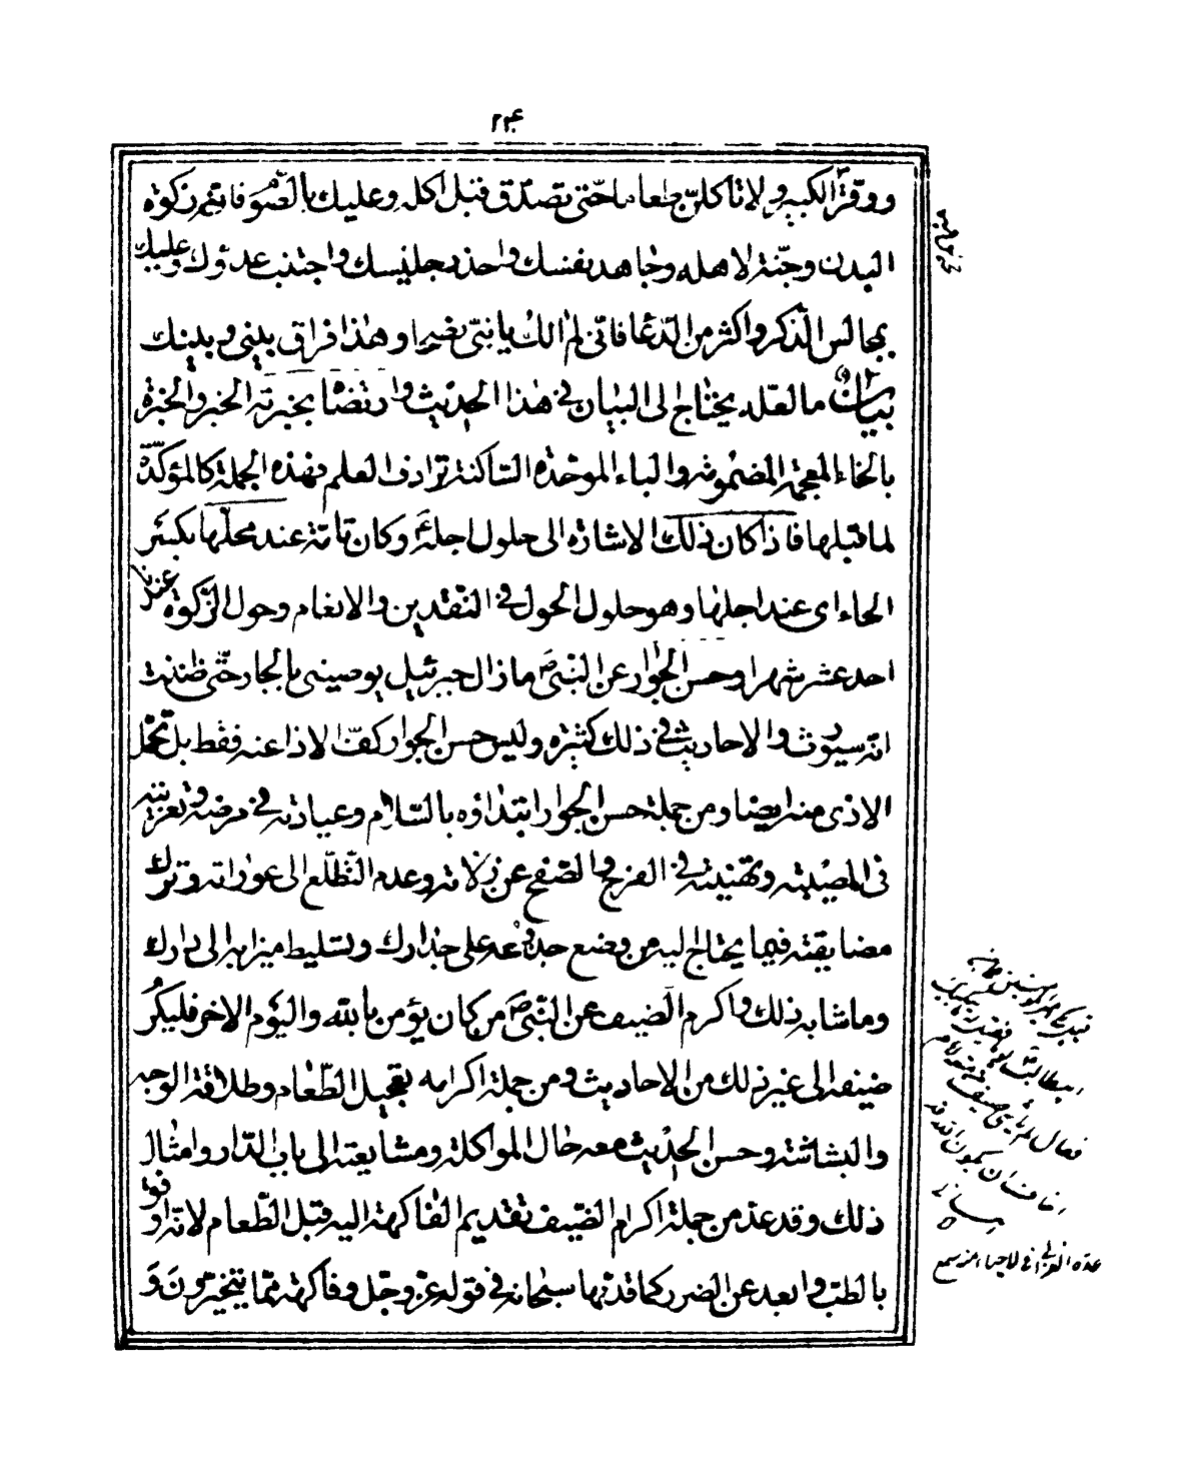 ٢٢٤
ووقّر الكبير ولا تاكلنّ طعاما حتّى تصدّق قبل اكله وعليك بالصّوم فانّه زكوة
البدن وجنّة لاهله وجاهد نفسك واحذر جليسك واجتنب عدوّك وعليك
بمجالس الذّكر واكثر من الدّعا فانّى لم الك يا بنىّ نصيحا وهذا فراق بينى وبينك
بيان ما لعلّه يحتاج الى البيان فى هذا الحديث وارتضانا بخبرته الخبر والخبرة
بالخاء المعجمة المضمومة والباء الموحّدة السّاكنة ترادف العلم فهذه الجملة كالمؤكّدة
لما قبلها فاذا كان ذلك الاشارة الى حلول اجله وكان تامة عند محلّها بكسر
الحاء اى عند اجلها وهو حلول الحول فى النّقدين والانعام وحول الزّكوة عندنا
احد عشر شهرا وحسن الجوار عن النّبىّ ص ما زال جبرئيل يوصينى بالجار حتّى ظننت
انّه سيورّث والاحاديث فى ذلك كثيرة وليس حسن الجوار كفّ الاذا عنه فقط بل تحمّل
الاذى منه ايضا ومن جملة حسن الجوار ابتداؤه بالسّلام وعيادته فى مرضه وتعزيته
فى المصيبة وتهنيته فى الفرح والصّفح عن زلّاته وعدم التّطّلع الى عوراته وترك
مضايقته فيما يحتاج اليه من وضع جذوعه على جدارك وتسليط ميزابه الى دارك
وما شابه ذلك واكرم الضّيف عن النّبىّ ص من كان يؤمن بالله واليوم الاخر فليكرم
ضيفه الى غير ذلك من الاحاديث ومن جملة اكرامه تعجيل الطّعام وطلاقة الوجه
والبشاشة وحسن الحديث معه حال المواكلة ومشايعته الى باب الدّار وامثال
ذلك وقد عدّ من جملة اكرام الضّيف تقديم الفاكهة اليه قبل الطّعام لانّه اوفق
بالطّبّ وابعد عن الضرر كما قدّمها سبحانه فى قوله عزّ وجلّ وفاكهة ممّا يتخيّرون وَ
عدّه الغزالى فى الاحياء